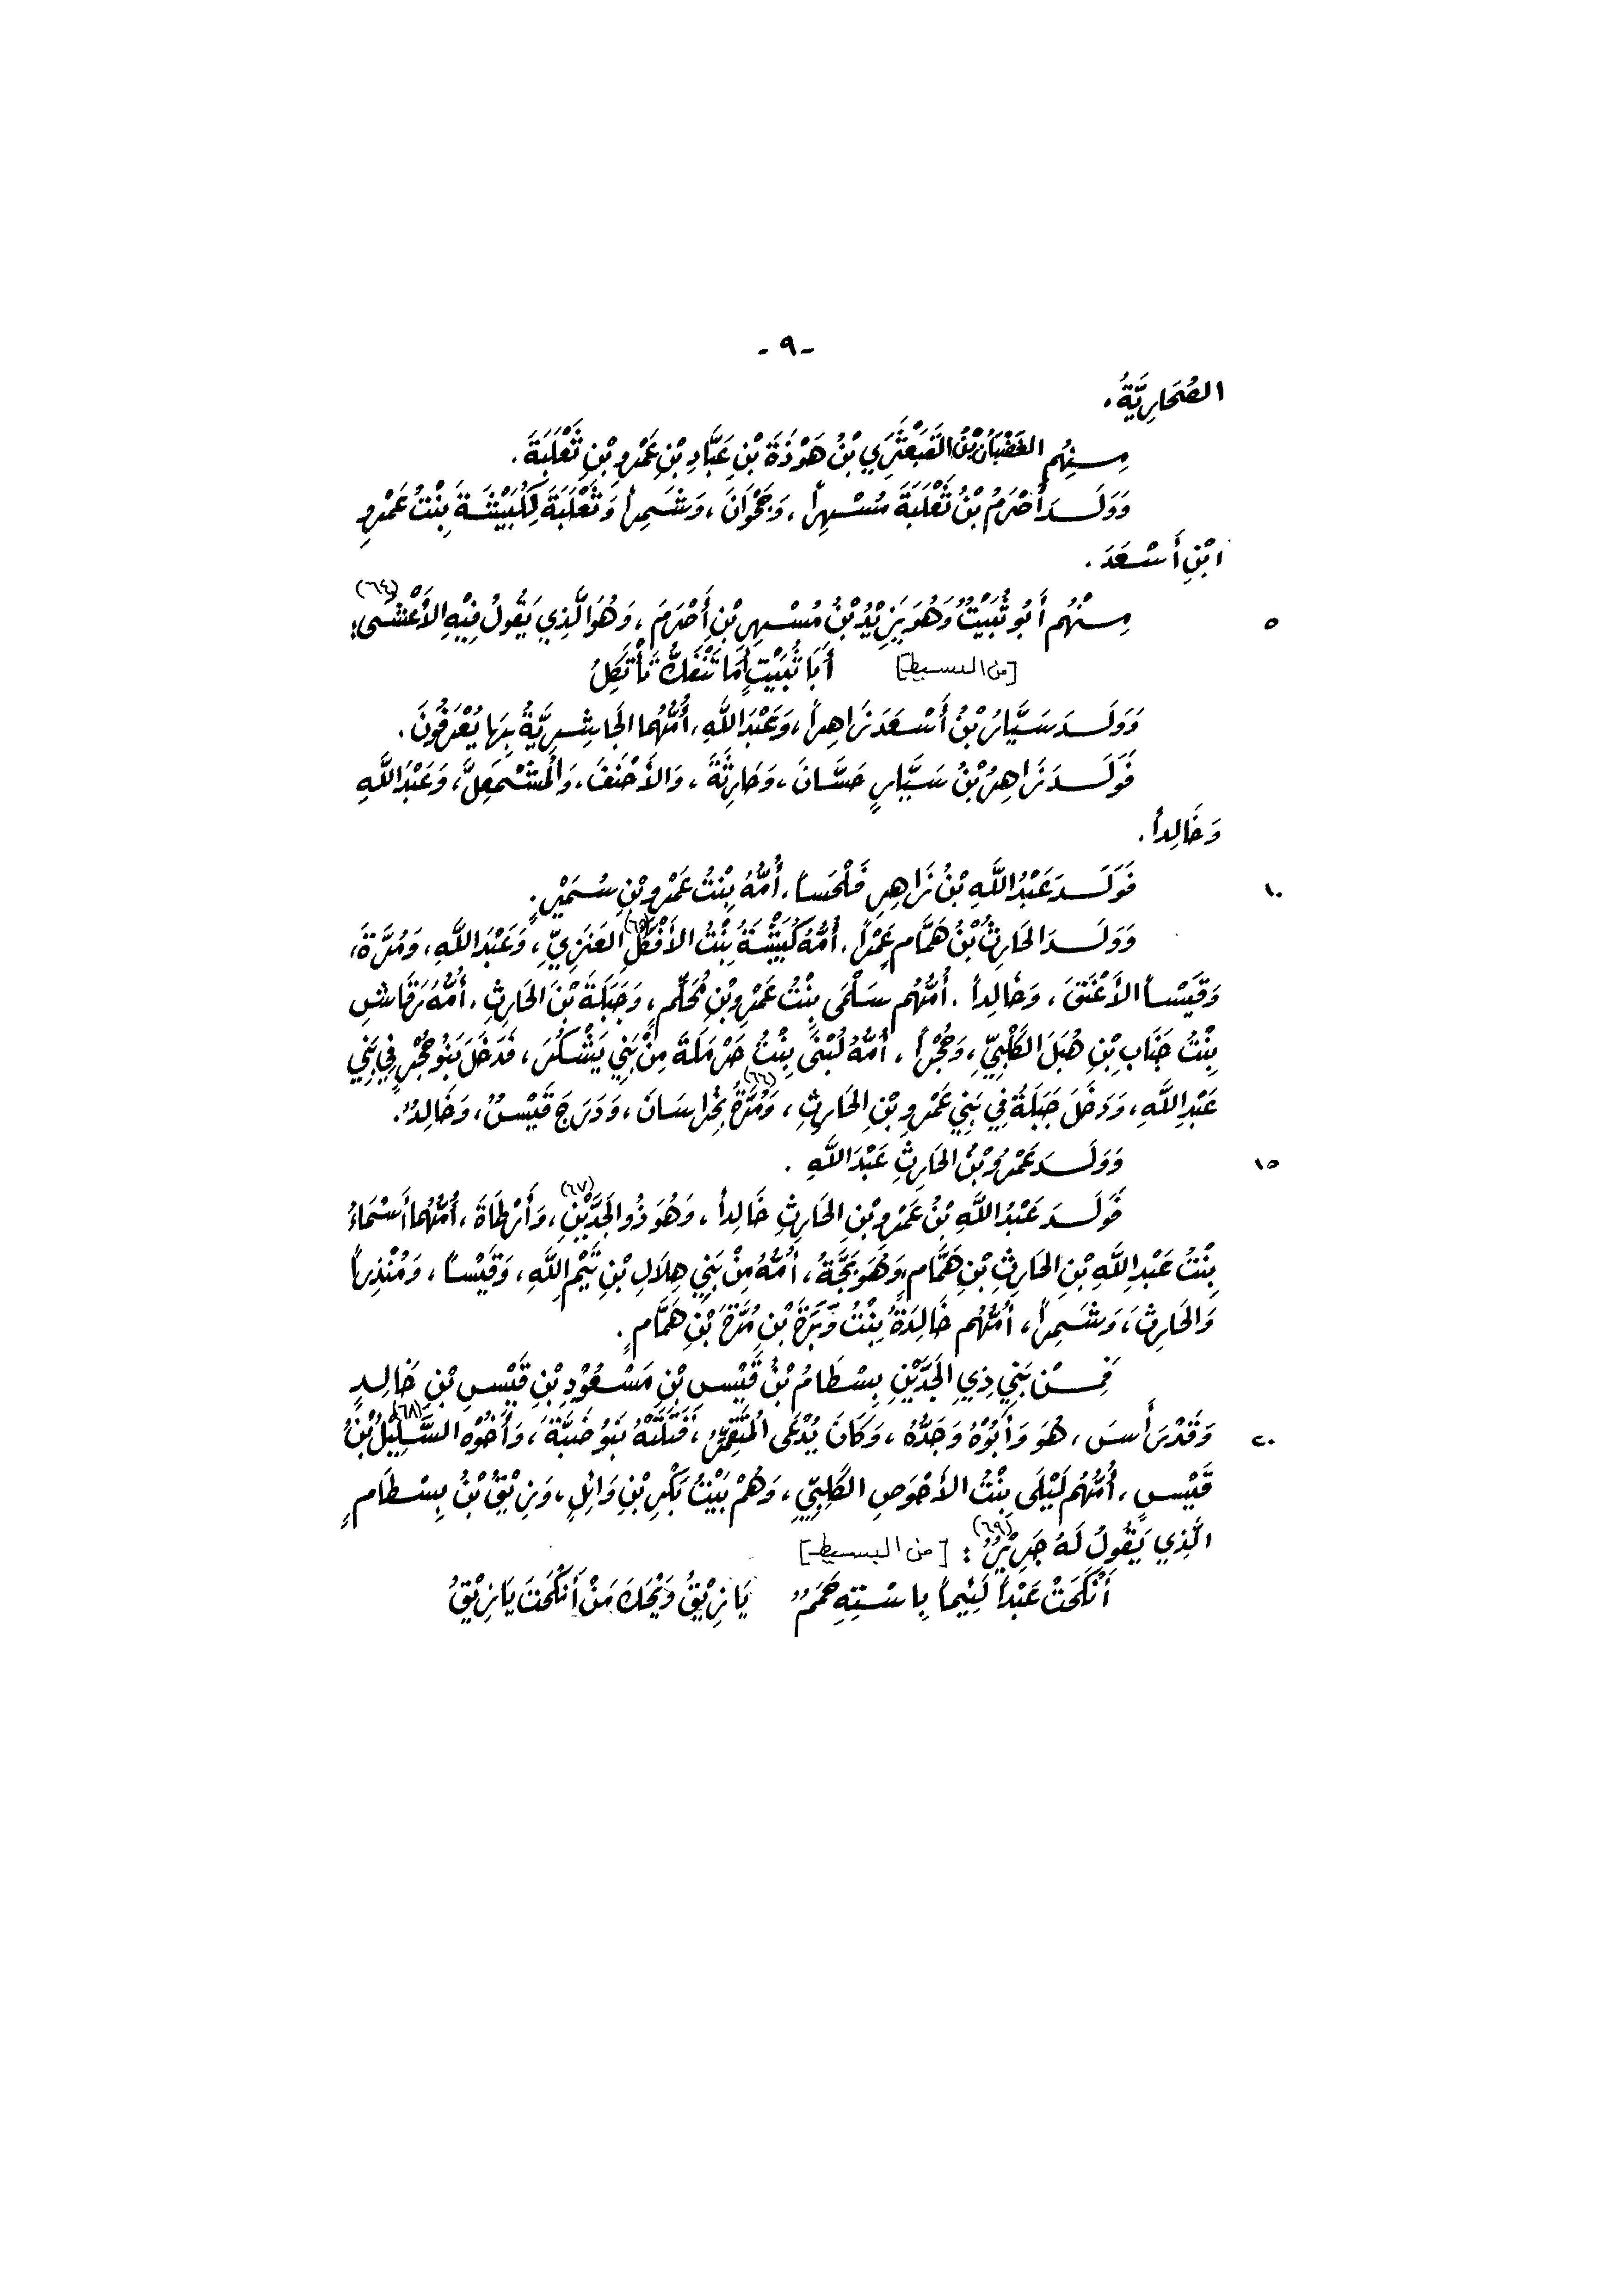 -٩-
الصُّحَارِيَّةُ.
مِنْهُم الغَضْبَانُ بْنُ القَبَعْثَرِي بْنُ هَوْذَةَ بْنِ عَبَّادِ بْنِ عَمْرِو بْنِ ثَعْلَبَةَ.
وَوَلَدَ أَصْرَمُ بْنُ ثَعْلَبَةَ مُسْهِراً، وَجَحْوَانَ، وَشَمِراً وَثَعْلَبَةَ لِكُبَيْشَةَ بِنْتُ عَمْرِو
ابْنِ أَسْعَدَ.
٥ مِنْهُم أَبُو ثُبَيْتٌ وَهُوَ يَزِيْدُ بْنُ مُسْهِرِ بْنِ أَصْرَمَ، وَهُوَ الَّذِي يَقُولُ فِيْهِ الأَعْشَى: (٦٤)
[من البسيط] أَبَا ثُبَيْتٍ أَمَا تَنْفَكُّ تَأْتَكِلُ
وَوَلَدَ سَيَّارُ بْنُ أَسْعَدَ زَاهِراً، وَعَبْدَ اللَّهِ، أُمُّهُما الجَاشِرِيَّةُ بِهَا يُعْرَفُونَ.
فَوَلَدَ زَاهِرُ بْنُ سَيَّارٍ حَسَّانَ، وَحَارِثَةَ، وَالأَحْنَفَ، وَالْمُشْمَعِلَّ، وَعَبْدَ اللَّهِ
وَخَالِداً.
١٠ فَوَلَدَ عَبْدُ اللَّهِ بْنُ زَاهِرٍ فَلْحَساً، أُمُّهُ بِنْتُ عَمْرِو بْنِ سُمَيْرٍ.
وَوَلَدَ الحَارِثُ بْنُ هَمَّامٍ عَمْراً، أُمُّهُ كُبَيْشَةُ بِنْتُ الأَفْكَلِ (٦٥) العَنَزِيِّ، وَعَبْدَ اللَّهِ، وَمُرَّةَ،
وَقَيْساً الأَعْنَقَ، وَخَالِداً. أُمُّهُم سَلْمَى بِنْتُ عَمْرِو بْنِ مُحَلِّمٍ، وَجَبَلَةَ بْنَ الحَارِثِ، أُمُّهُ رَقَاشِ
بِنْتُ جَنَابِ بْنِ هُبَلَ الكَلْبِيِّ، وَحُجْراً، أُمُّهُ لُبْنَى بِنْتُ حَرْمَلَةَ مِنْ بَنِي يَشْكُرَ، فَدَخَلَ بَنُو حُجْرٍ فِي بَنِي
عَبْدِ اللَّهِ، وَدَخَلَ جَبَلَةُ فِي بَنِي عَمْرِو بْنِ الحَارِثِ، وَمُرَّةُ (٦٦) بِخُرَاسَانَ، وَدَرَجَ قَيْسٌ، وَخَالِدٌ.
١٥ وَوَلَدَ عَمْرُو بْنُ الحَارِثِ عَبْدَ اللَّهِ.
فَوَلَدَ عَبْدُ اللَّهِ بْنُ عَمْرِو بْنِ الحَارِثِ خَالِداً، وَهُوَ ذُو الجَدَّيْنِ (٦٧)، وَأَرْطَاةَ، أُمُّهُما أَسْمَاءُ
بِنْتُ عَبْدِ اللَّهِ بْنِ الحَارِثِ بْنِ هَمَّامٍ، وَهُوَ بَجَّةُ، أُمُّهُ مِنْ بَنِي هِلَالِ بْنِ تَيْمِ اللَّهِ، وَقَيْساً، وَمُنْذِراً
وَالحَارِثَ، وَشَمِراً، أُمُّهُم خَالِدَةُ بِنْتُ وَبَرَةَ بْنِ مُرَّةَ بْنِ هَمَّامٍ.
فَمِنْ بَنِي ذِي الجَدَّيْنِ بِسْطَامُ بْنُ قَيْسِ بْنِ مَسْعُوْدِ بْنِ قَيْسِ بْنِ خَالِدٍ
٢٠ وَقَدْ رَأَسَ، هُوَ وَأَبُوْهُ وَجَدُّهُ، وَكَانَ يُدْعَى الْمُتَقَمِّرُ، فَقَتَلَتْهُ بَنُو ضَبَّةَ، وَأَخُوْهُ السَّلِيْلُ (٦٨) بْنُ
قَيْسٍ، أُمُّهُم لَيْلَى بِنْتُ الأَحْوَصِ الكَلْبِيِّ، وَهُمْ بَيْتُ بَكْرِ بْنِ وَائِلٍ، وَزِيْقُ بْنُ بِسْطَامٍ
الَّذِي يَقُولُ لَهُ جَرِيْرٌ (٦٩): [من البسيط]
أَنْكَحْتَ عَبْداً لَئِيماً بِاسْتِهِ حَمَمٌ يَا زِيْقُ وَيْحَكَ مَنْ أَنْكَحْتَ يَا زِيْقُ